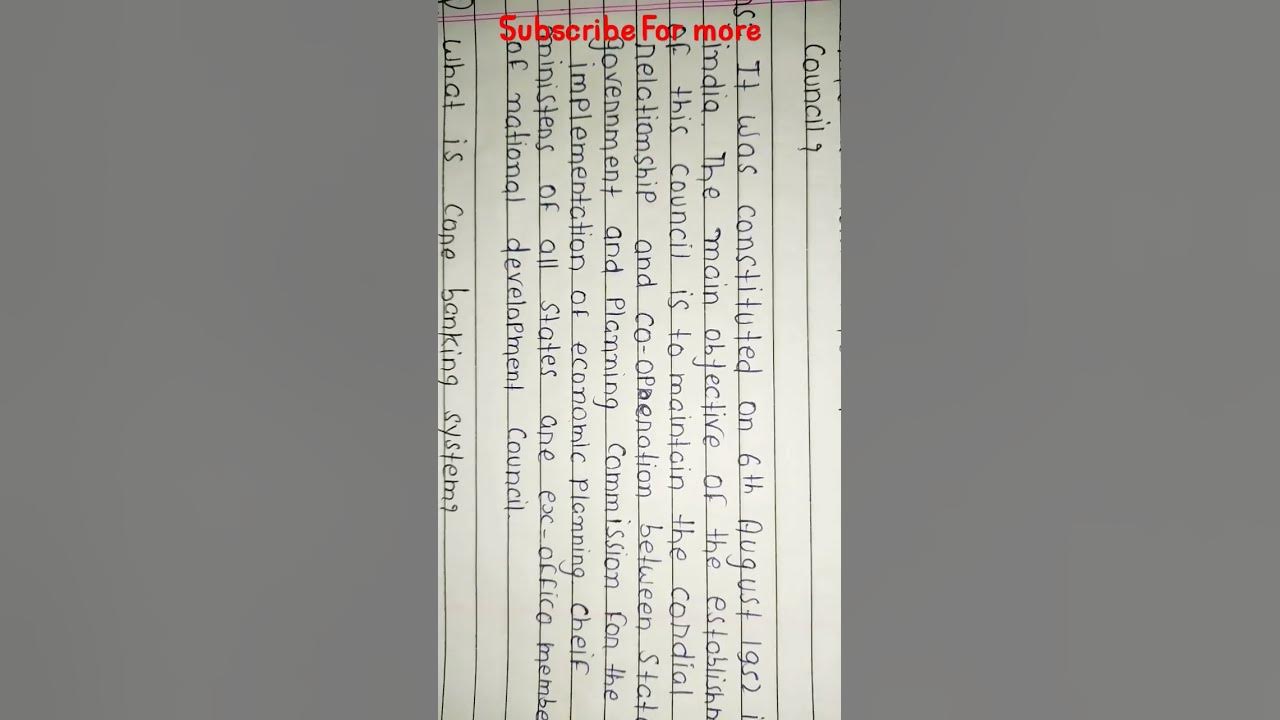 Subscribe For more
Council?
ns. It was constituted on 6th August 1952 i
india. The main objective of the establishm
of this council is to maintain the cordial
relationship and co-operation between Stat
government and Planning Commission for the
implementation of economic planning cheif
ministers of all states are ex-offico membe
of national development Council.
What is Core banking system?